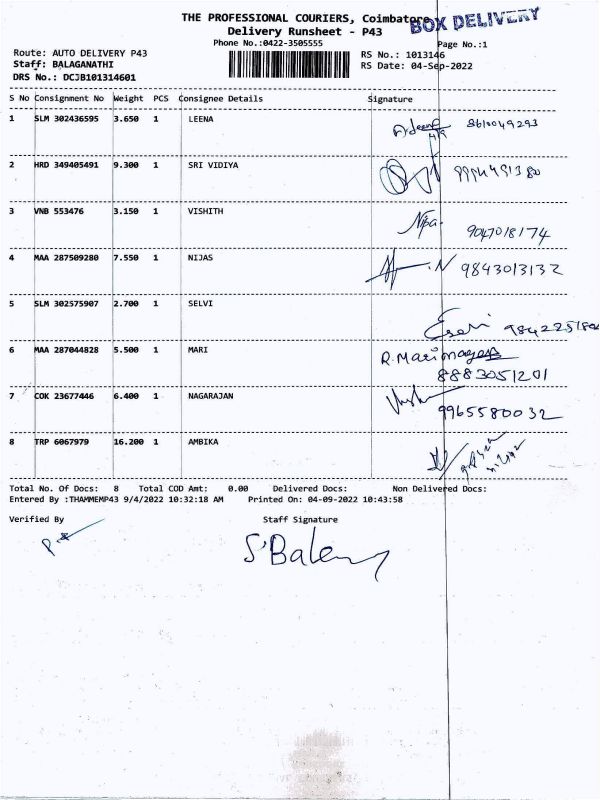 THE PROFESSIONAL COURIERS, Coimbatore
BOX DELIVERY
Delivery Runsheet - P43
Phone No.:0422-3505555
Page No.:1
Route: AUTO DELIVERY P43
RS No.: 1013146
Staff: BALAGANATHI
RS Date: 04-Sep-2022
DRS No.: DCJB101314601
S No Consignment No Weight PCS Consignee Details Signature
1 SLM 302436595 3.650 1 LEENA
2 HRD 349405491 9.300 1 SRI VIDIYA
3 VNB 553476 3.150 1 VISHITH 9047018174
4 MAA 287509280 7.550 1 NIJAS N 9843013132
5 SLM 302575907 2.700 1 SELVI
6 MAA 287044828 5.500 1 MARI R.Marimages
8883051201
7 COK 23677446 6.400 1 NAGARAJAN 9965580032
8 TRP 6067979 16.200 1 AMBIKA
Total No. Of Docs: 8 Total COD Amt: 0.00 Delivered Docs: Non Delivered Docs:
Entered By :THAMMEMP43 9/4/2022 10:32:18 AM Printed On: 04-09-2022 10:43:58
Verified By Staff Signature